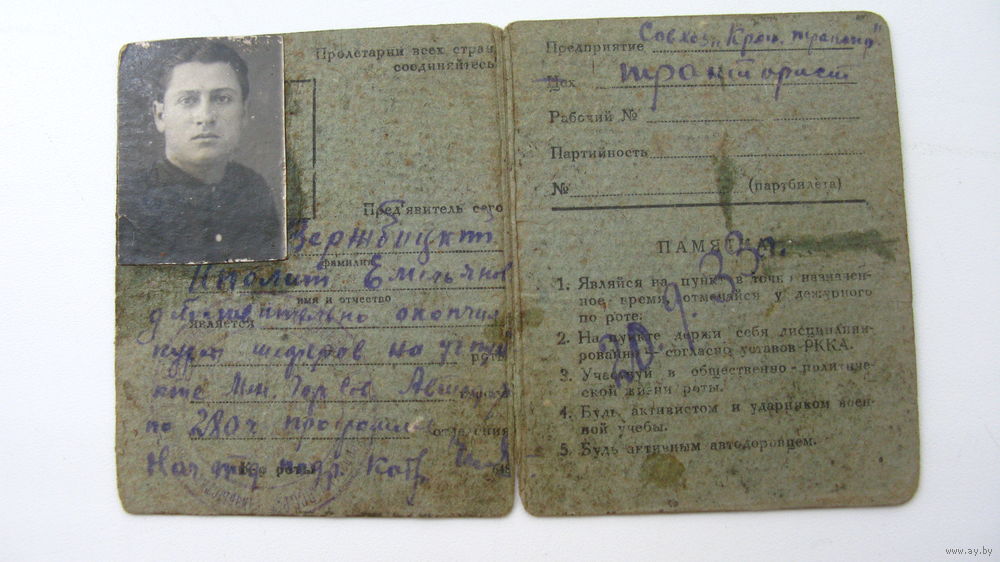 Пролетарии всех стран
соединяйтесь
Пред'явитель сего
Вержбицкий
фамилия
Иполит Емельянов
имя и отчество
действительно окончил
является
курсы шоферов на уч пун
роты
кте Мин. Гор Сов. Автодор
по 280 ч программе
отделения
Нач. подр.
роты
Предприятие Совхоз „Крас.
Цех тракторист
Рабочий №
Партийность
№ (партбилета)
20.9.33г.
ПАМЯТКА
1. Являйся на пункт в точно назначен-
ное время, отмечайся у дежурного
по роте.
2. На пункте держи себя дисциплини-
рованно — согласно уставов РККА.
3. Участвуй в общественно-политиче-
ской жизни роты.
4. Будь активистом и ударником воен-
ной учебы.
5. Будь активным автодоровцем.
www.ay.by